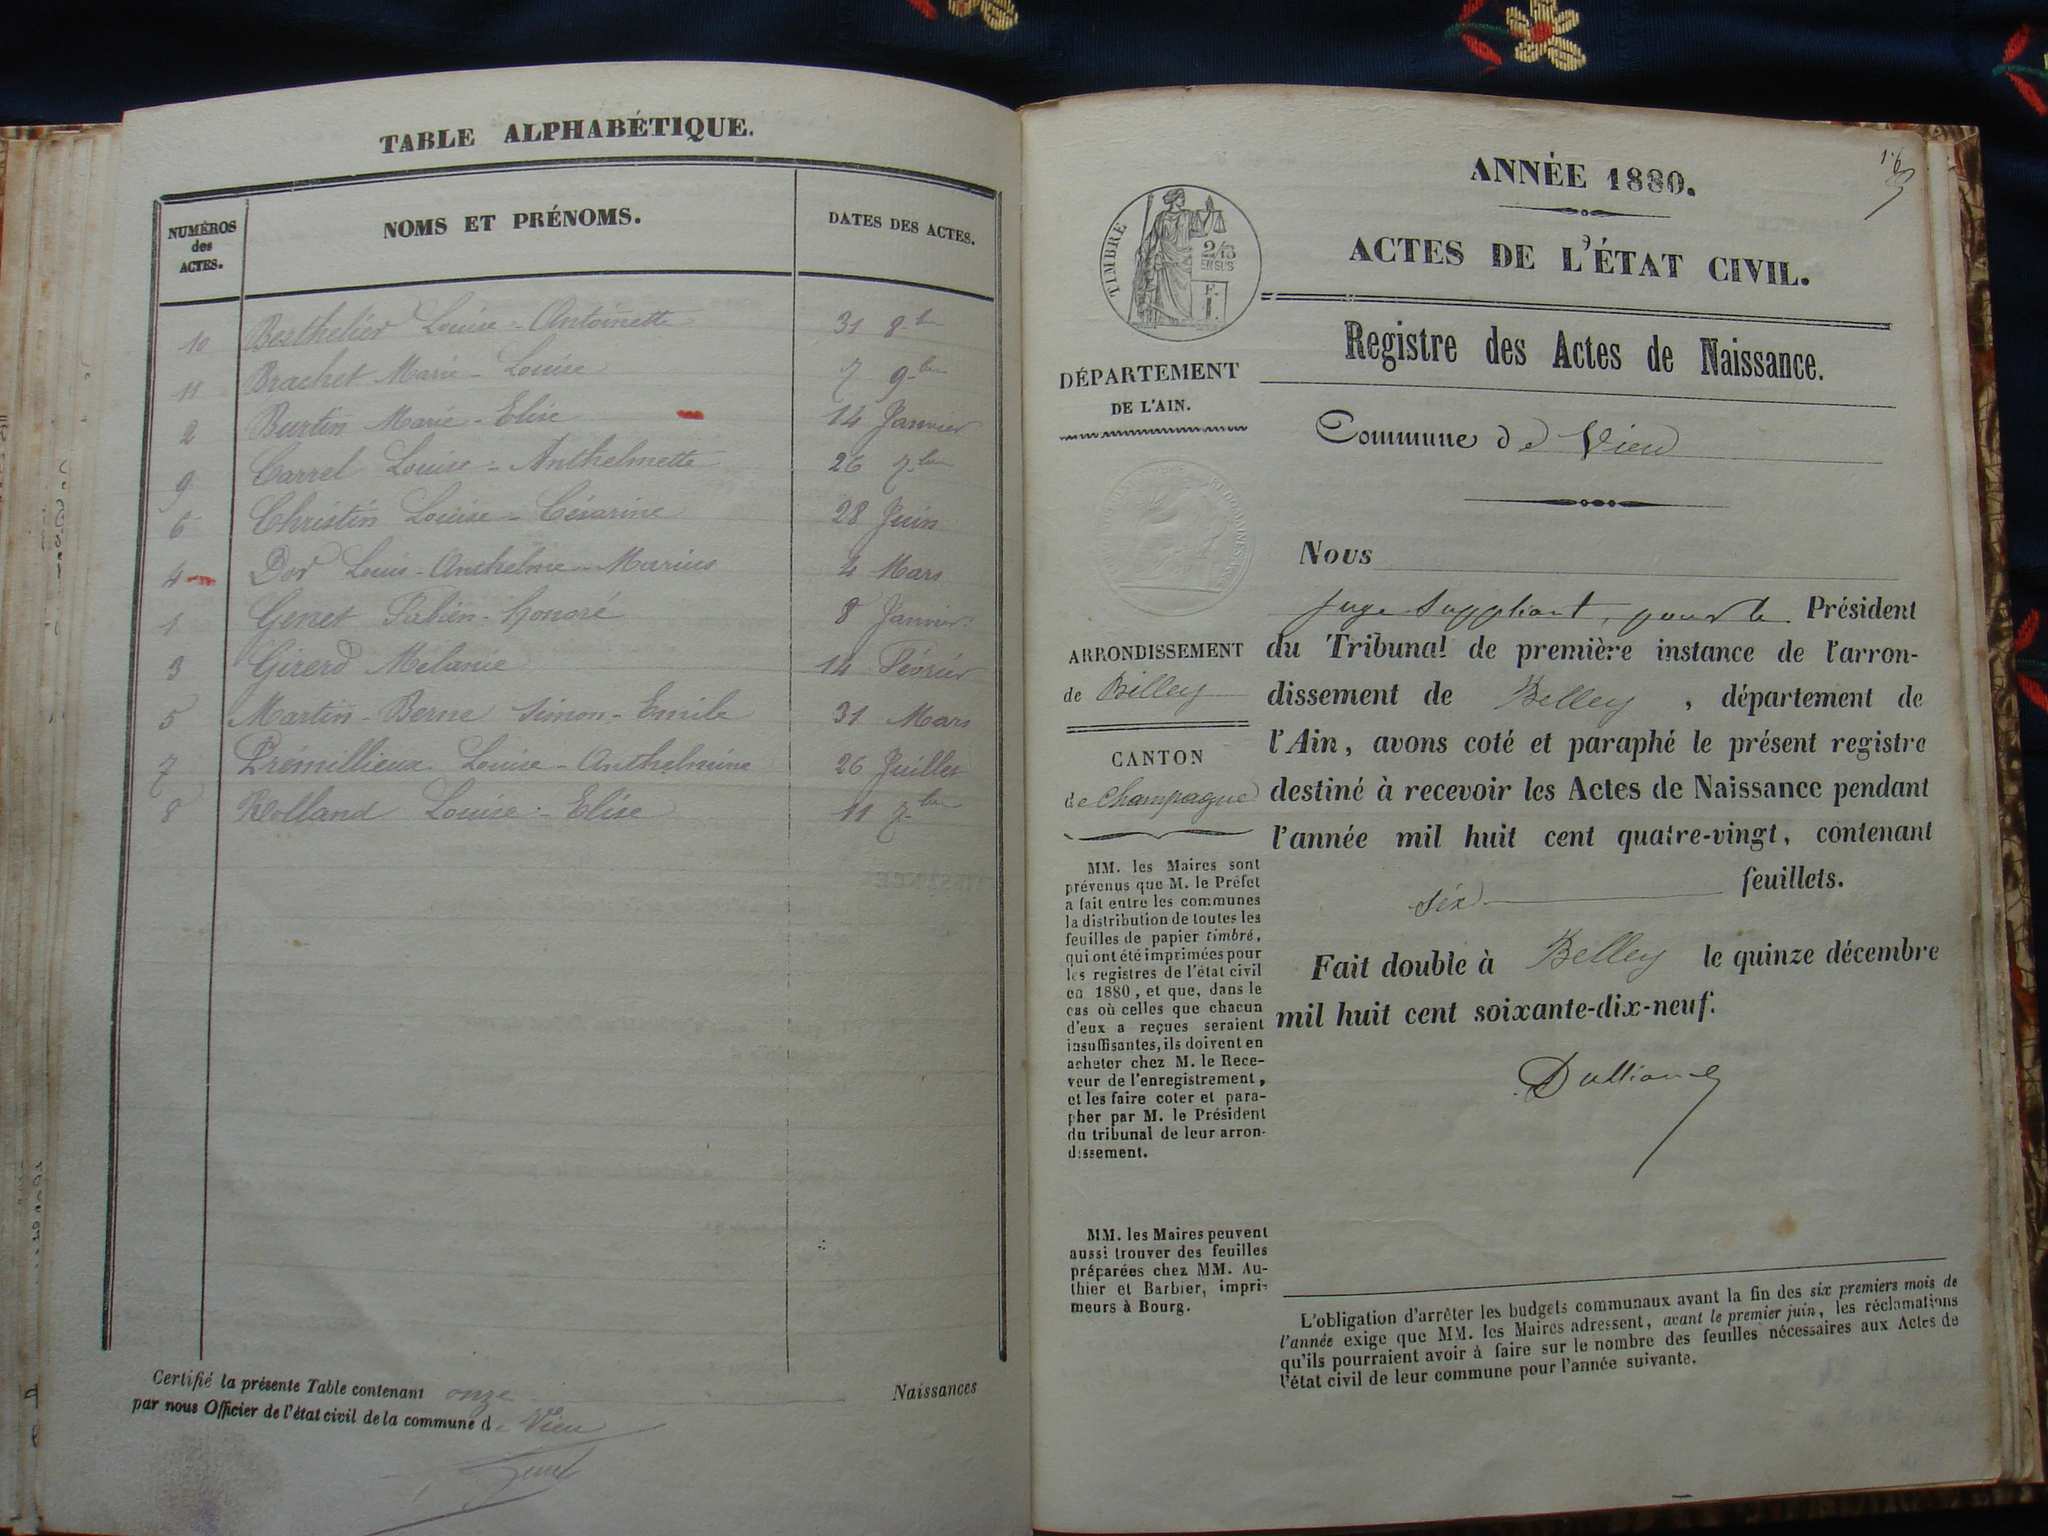 TABLE ALPHABÉTIQUE.
NUMÉROS des ACTES. NOMS ET PRÉNOMS. DATES DES ACTES.
10 Berthelier Louise-Antoinette 31 8bre
11 Brachet Marie-Louise 7 9bre
2 Burtin Marie-Elise 14 Janvier
9 Carrel Louise-Anthelmette 26 7bre
6 Christin Louise-Césarine 28 Juin
4 Dor Louis-Anthelme-Marius 4 Mars
1 Genet Fabien-Honoré 8 Janvier
3 Girerd Mélanie 14 Février
5 Martin-Berne Simon-Emile 31 Mars
7 Prémillieux Louise-Anthelmine 26 Juillet
8 Rolland Louise-Elise 11 7bre
Certifié la présente Table contenant onze Naissances
par nous Officier de l'état civil de la commune de Vieu
ANNÉE 1880.
ACTES DE L'ÉTAT CIVIL.
TIMBRE
Registre des Actes de Naissance.
DÉPARTEMENT
DE L'AIN.
Commune de Vieu
ARRONDISSEMENT
de Belley
CANTON
de Champagne
MM. les Maires sont
prévenus que M. le Préfet
a fait entre les communes
la distribution de toutes les
feuilles de papier timbré,
qui ont été imprimées pour
les registres de l'état civil
en 1880, et que, dans le
cas où celles que chacun
d'eux a reçues seraient
insuffisantes, ils doivent en
acheter chez M. le Rece-
veur de l'enregistrement,
et les faire coter et para-
pher par M. le Président
du tribunal de leur arron-
dissement.
MM. les Maires peuvent
aussi trouver des feuilles
préparées chez MM. Au-
thier et Barbier, impri-
meurs à Bourg.
Nous
juge suppléant, pour le Président
du Tribunal de première instance de l'arron-
dissement de Belley, département de
l'Ain, avons coté et paraphé le présent registre
destiné à recevoir les Actes de Naissance pendant
l'année mil huit cent quatre-vingt, contenant
six feuillets.
Fait double à Belley le quinze décembre
mil huit cent soixante-dix-neuf.
L'obligation d'arrêter les budgets communaux avant la fin des six premiers mois de
l'année exige que MM. les Maires adressent, avant le premier juin, les réclamations
qu'ils pourraient avoir à faire sur le nombre des feuilles nécessaires aux Actes de
l'état civil de leur commune pour l'année suivante.